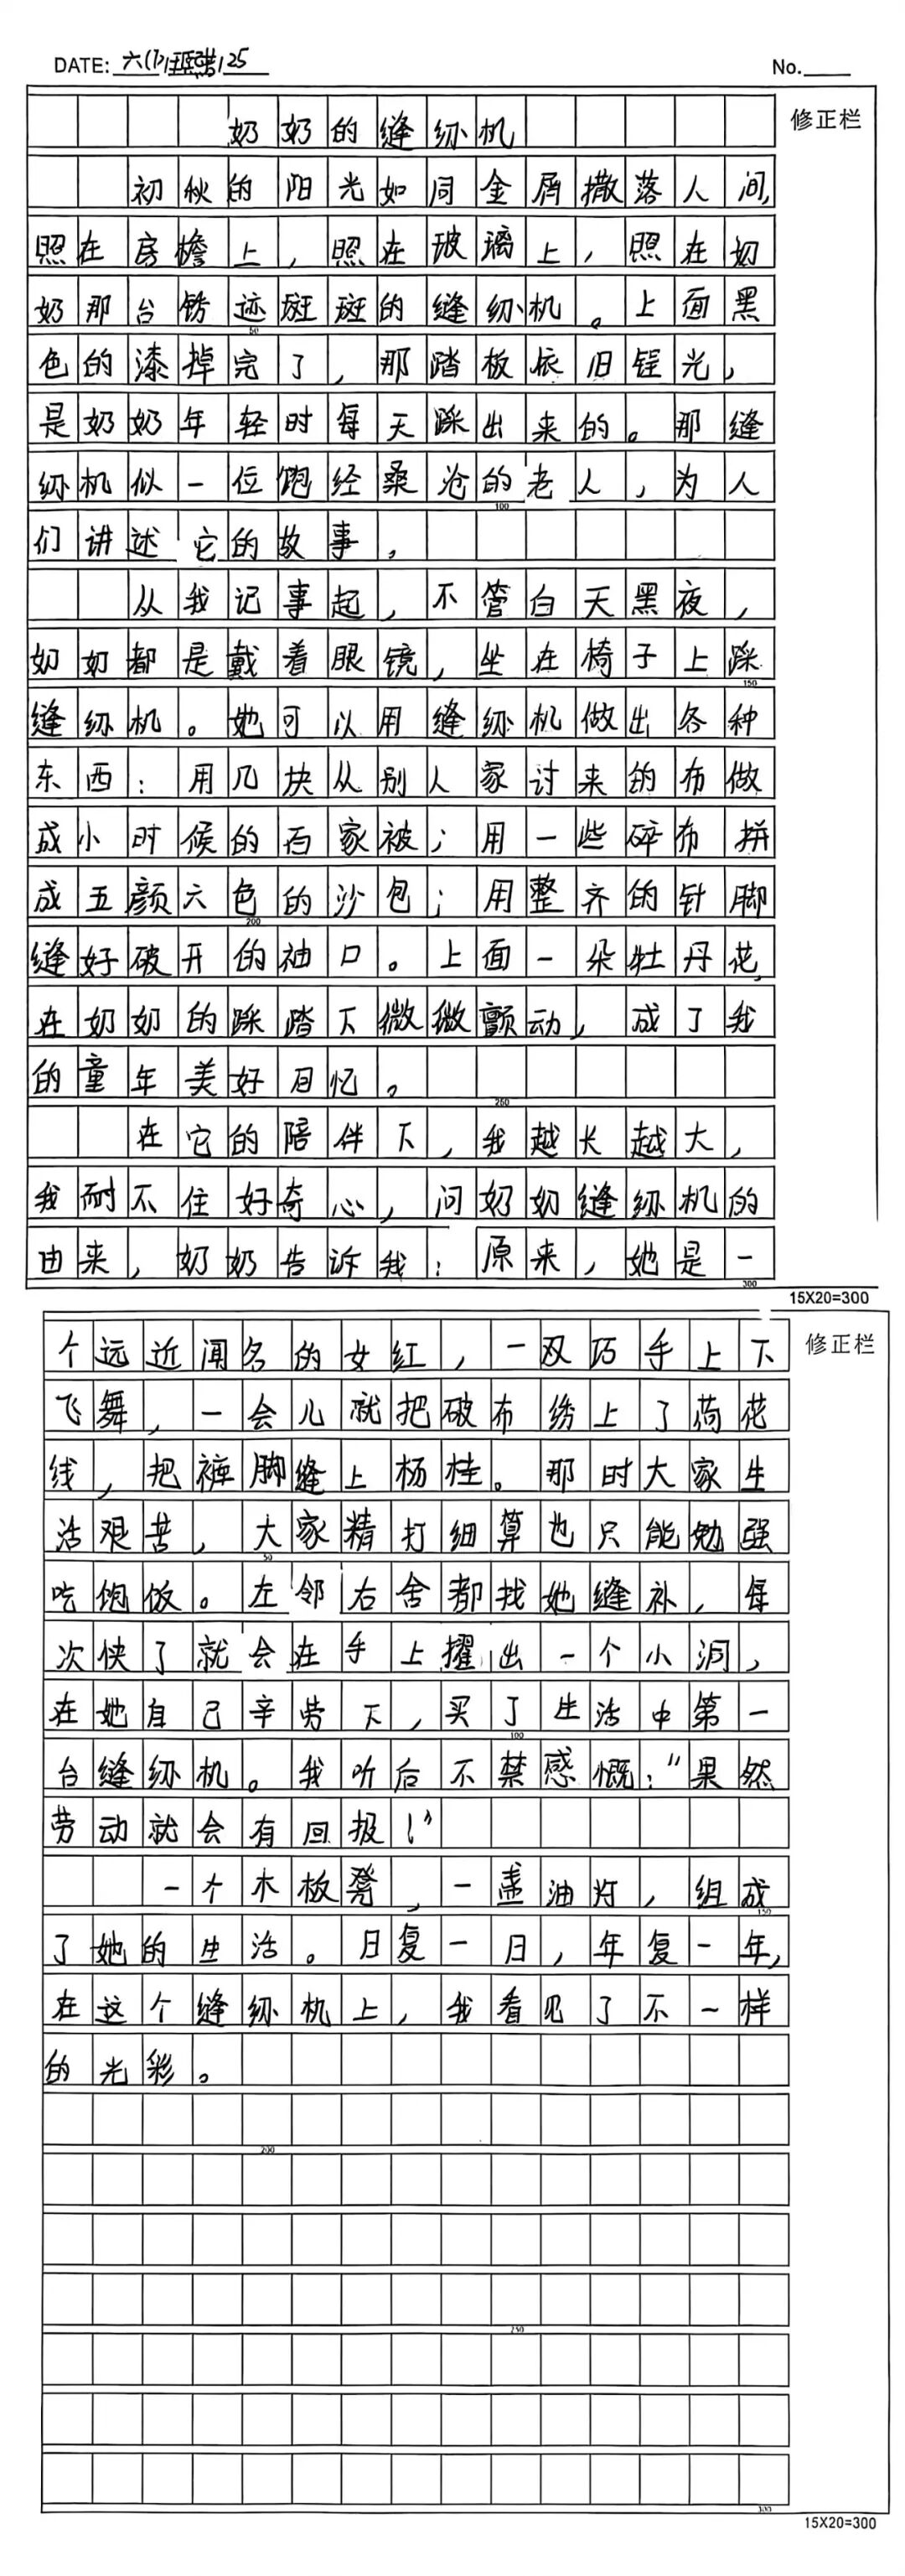 DATE: 六(7)班 25
No.
修正栏
奶奶的缝纫机
初秋的阳光如同金屑撒落人间,
照在房檐上,照在玻璃上,照在奶
奶那台锈迹斑斑的缝纫机。上面黑
色的漆掉完了,那踏板依旧锃光,
是奶奶年轻时每天踩出来的。那缝
纫机似一位饱经桑沧的老人,为人
们讲述它的故事。
从我记事起,不管白天黑夜,
奶奶都是戴着眼镜,坐在椅子上踩
缝纫机。她可以用缝纫机做出各种
东西:用几块从别人家讨来的布做
成小时候的百家被;用一些碎布拼
成五颜六色的沙包;用整齐的针脚
缝好破开的袖口。上面一朵牡丹花,
在奶奶的踩踏下微微颤动,成了我
的童年美好回忆。
在它的陪伴下,我越长越大,
我耐不住好奇心,问奶奶缝纫机的
由来,奶奶告诉我:原来,她是一
15X20=300
修正栏
个远近闻名的女红,一双巧手上下
飞舞,一会儿就把破布绣上了荷花
线,把裤脚缝上杨桂。那时大家生
活艰苦,大家精打细算也只能勉强
吃饱饭。左邻右舍都找她缝补,每
次快了就会在手上擢出一个小洞,
在她自己辛劳下,买了生活中第一
台缝纫机。我听后不禁感慨:“果然
劳动就会有回报!”
一个木板凳,一盏油灯,组成
了她的生活。日复一日,年复一年,
在这个缝纫机上,我看见了不一样
的光彩。
15X20=300